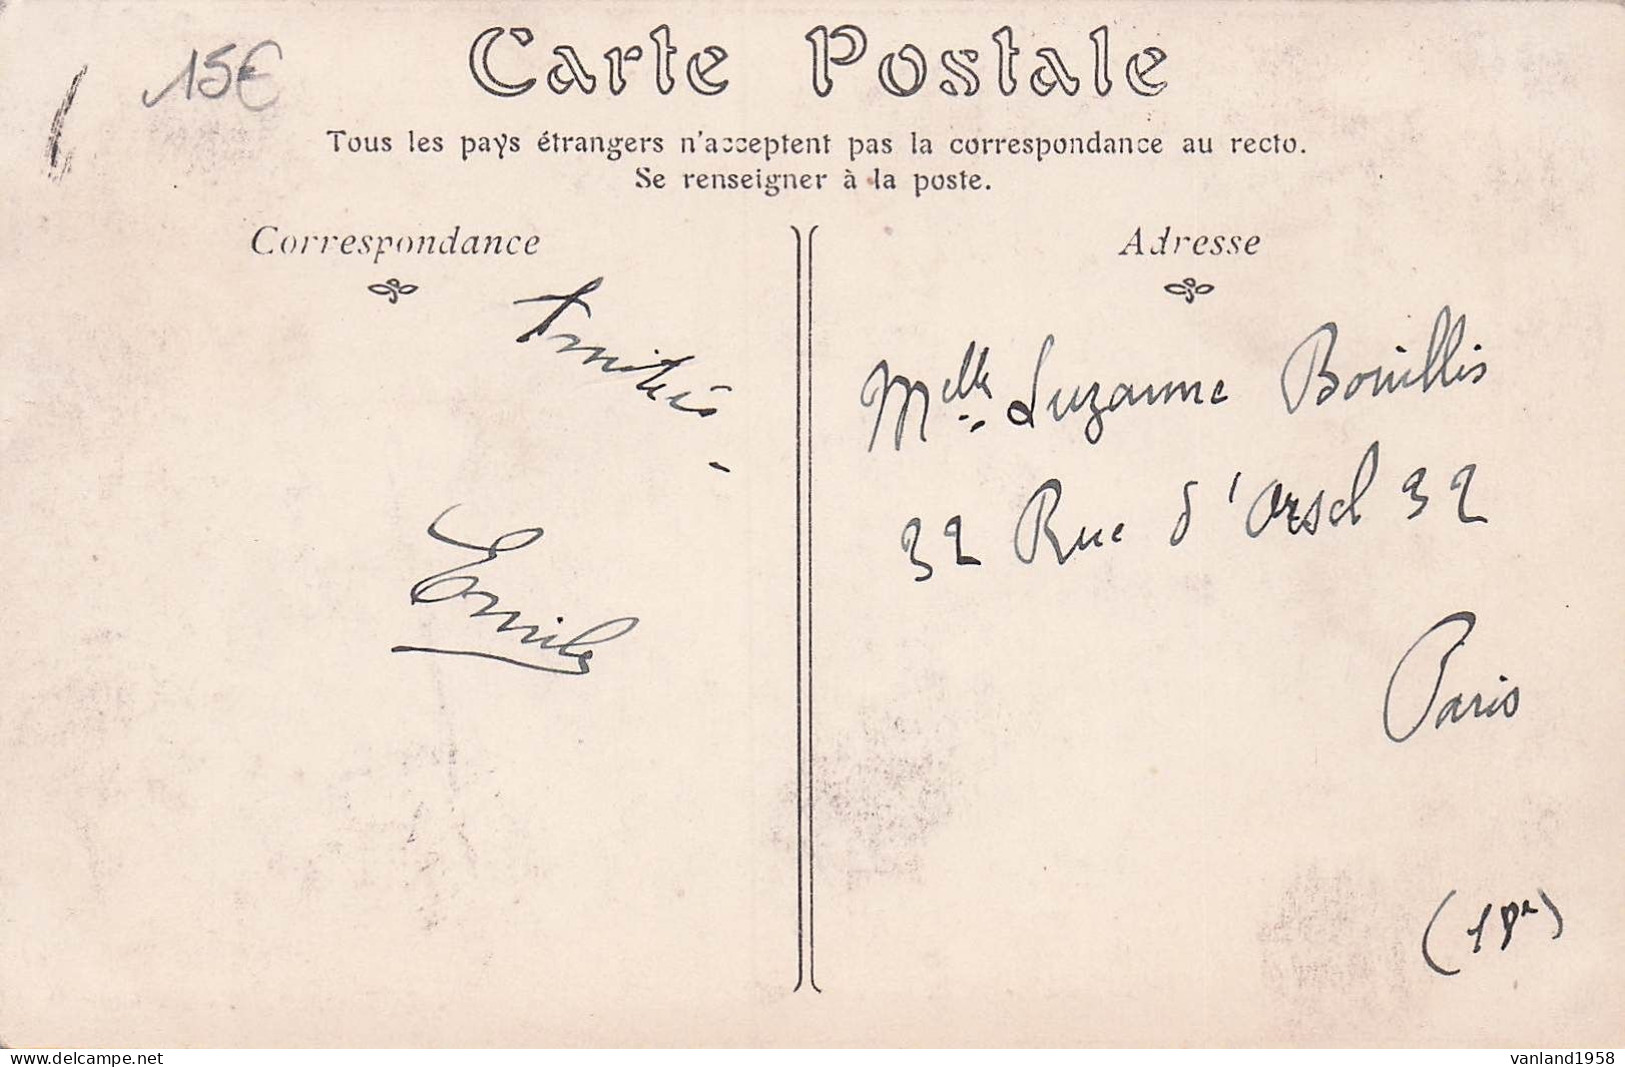 15€
Carte Postale
Tous les pays étrangers n'acceptent pas la correspondance au recto.
Se renseigner à la poste.
Correspondance
Amitiés
Emile
Adresse
Melle Suzanne Bouillis
32 Rue d'Orsel 32
Paris
(18e)
www.delcampe.net
vanland1958